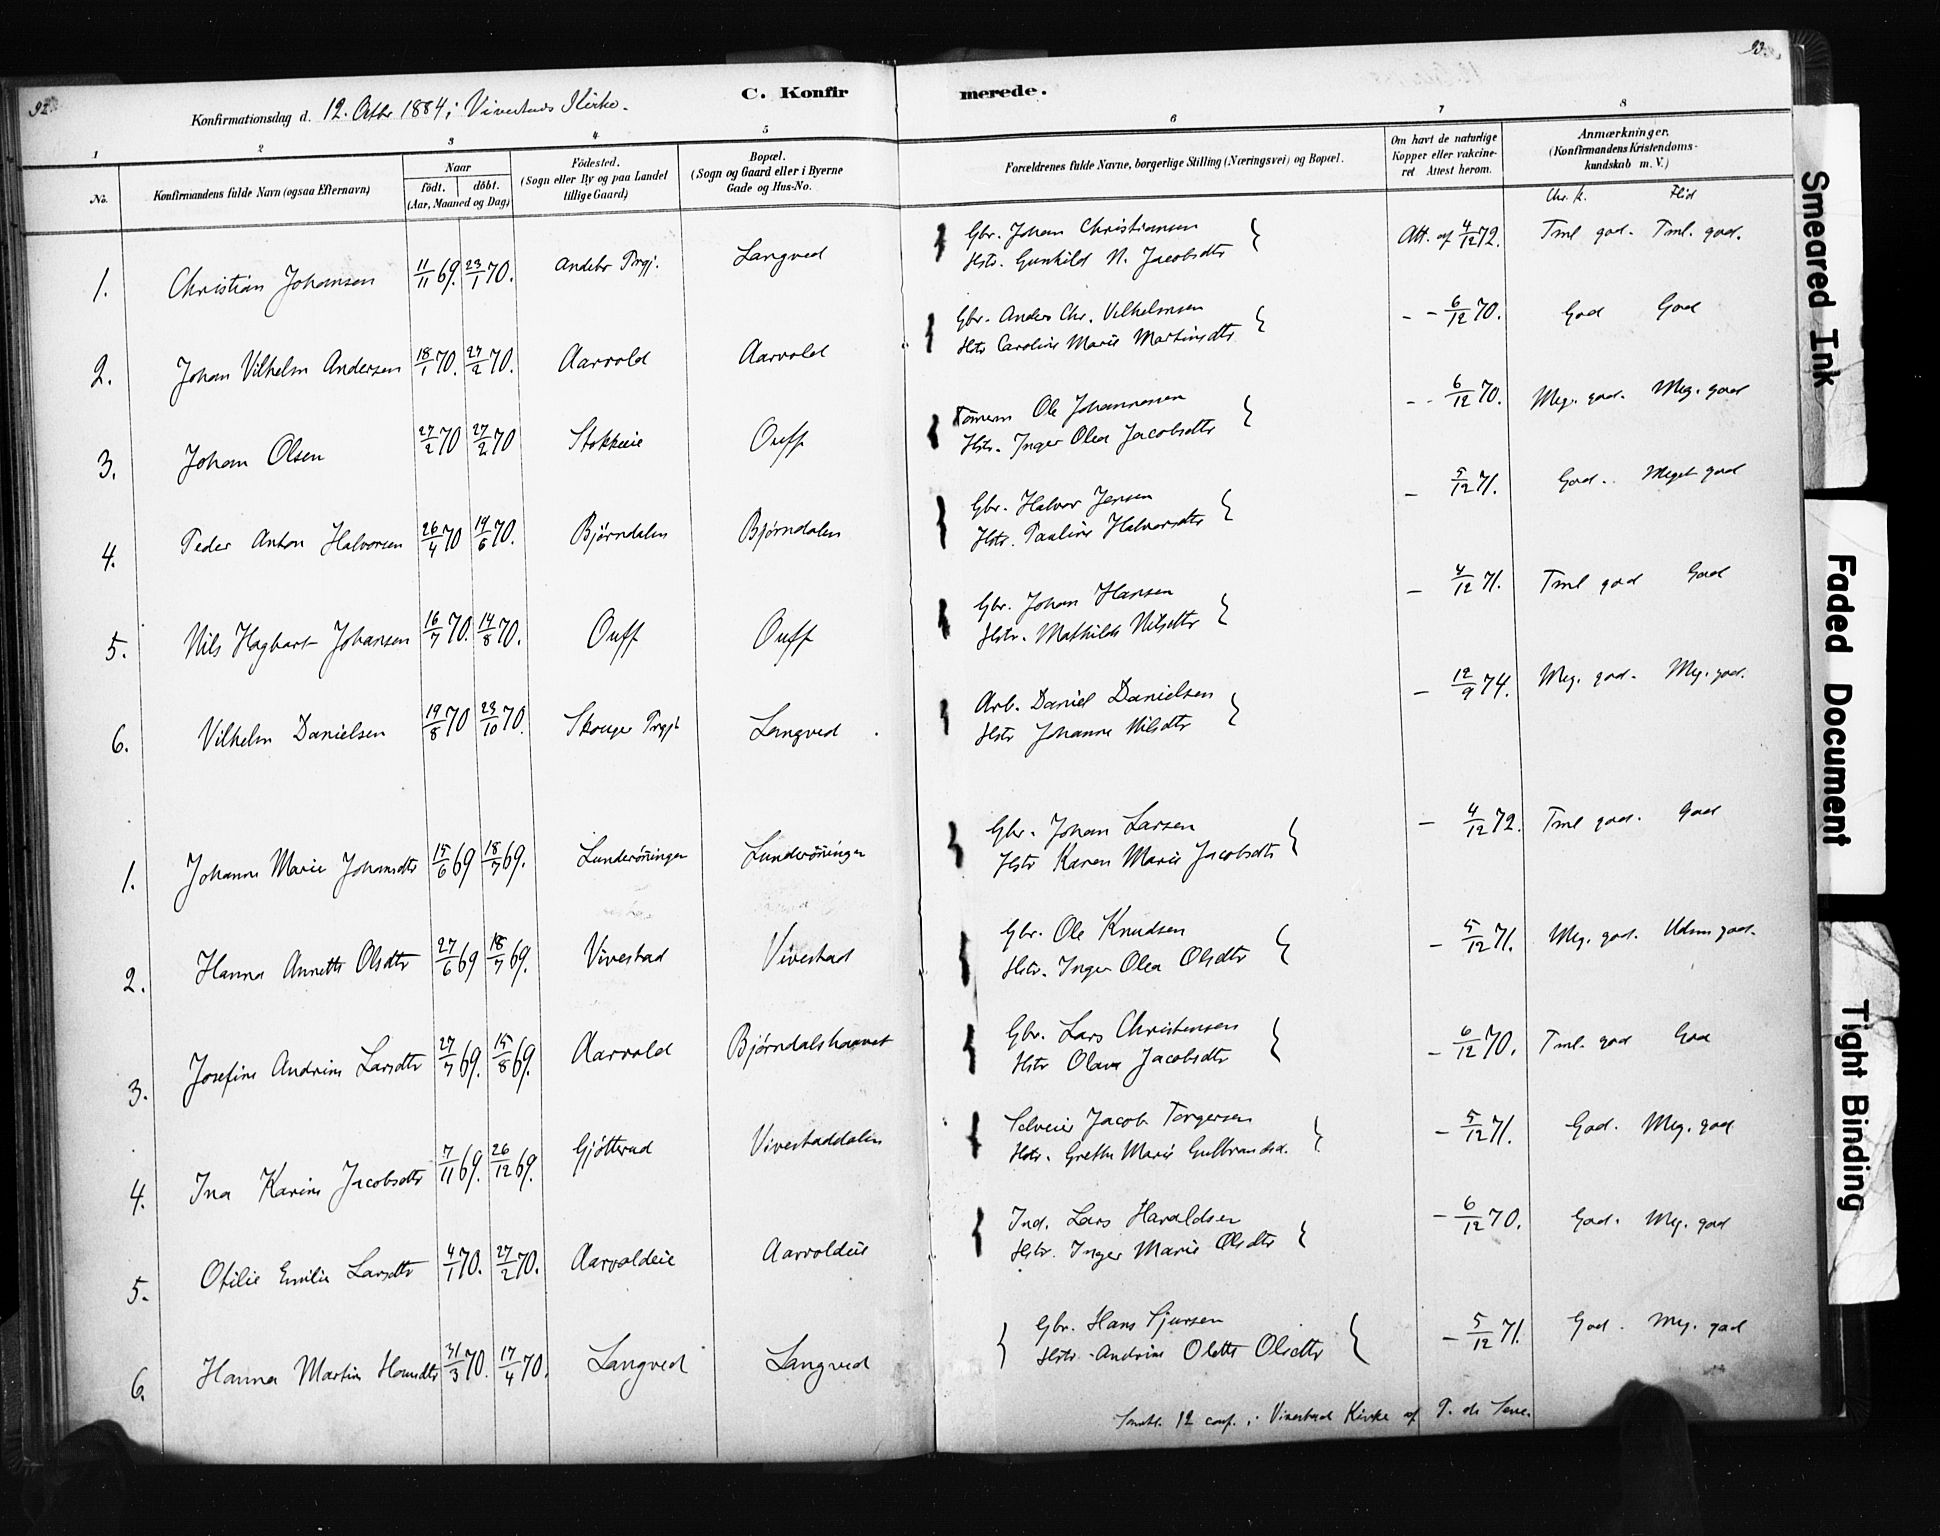 92.
93.
C. Konfirmerede.
Konfirmationsdag d. 12. Octbr 1884, i Vivestads Kirke.
1 2 3 4 5 6 7 8
No.
Konfirmandens fulde Navn (ogsaa Efternavn)
Naar
födt. döbt.
(Aar, Maaned og Dag)
Födested.
(Sogn eller By og paa Landet
tillige Gaard)
Bopæl.
(Sogn og Gaard eller i Byerne
Gade og Hus-No.
Forældrenes fulde Navne, borgerlige Stilling (Næringsvei) og Bopæl.
Om havt de naturlige
Kopper eller vakcine-
ret Attest herom.
Anmærkninger.
(Konfirmandens Kristendoms-
kundskab m. V.)
Chr. K. Flid
1. Christian Johansen 11/11 69. 23/1 70. Andebo Prgj. Langved
Gbr. Johan Christiansen
Hstr. Gunhild N. Jacobsdtr
Att. af 4/12 72. Tml god. Tml. god.
2. Johan Vilhelm Andersen 18/1 70. 27/2 70. Aarvold Aarvold
Gbr. Anders Chr. Vilhelmsen
Hstr Caroline Marie Martinsdtr
- - 6/12 70. God God
3. Johan Olsen 27/2 70 27/2 70 Stokkeie Ouff
Tömerm Ole Johannesen
Hstr. Inger Olea Jacobsdtr
- - 6/12 70. Meg. god. Meg. god
4. Peder Anton Halvorsen 26/4 70 19/6 70. Bjørndalen Bjørndalen
Gbr. Halvor Jensen
Hstr. Pauline Halvorsdtr
- 5/12 71. God. Meget god
5. Nils Hagbart Johansen 16/7 70. 14/8 70. Ouff Ouff
Gbr. Johan Hansen
Hstr. Mathilde Nilsdtr
- 4/12 71. Tml god God
6. Vilhelm Danielsen 19/8 70 23/10 70. Skouger Prgj. Langved
Arb. Daniel Danielsen
Hstr Johanne Nilsdtr
- 12/9 74. Meg. god. Meg. god.
1. Johanne Marie Johansdtr 15/6 69 18/7 69. Lunderönningen Lunderönningen
Gbr. Johan Larsen
Hstr Karen Marie Jacobsdtr
- 4/12 72. Tml god. God
2. Hanna Annette Olsdtr 27/6 69 18/7 69. Vivestad Vivestad
Gbr. Ole Knudsen
Hstr. Inger Olea Olsdtr
- 5/12 71. Meg. god. Udm god.
3. Josefine Andrine Larsdtr 27/7 69. 15/8 69. Aarvold Bjørndalshaavet
Gbr. Lars Christensen
Hstr Olava Jacobsdtr
- 6/12 70. Tml. god God
4. Ina Karine Jacobsdtr 7/11 69. 26/12 69. Gjötterud Vivestaddalen
Selveier Jacob Torgersen
Hstr. Grethe Marie Gulbrandsd.
- 5/12 71. God. Meg. god
5. Otilie Emilie Larsdtr 4/1 70. 27/2 70. Aarvoldeie Aarvoldeie
Ind. Lars Haraldsen
Hstr. Inger Marie Olsdtr
- 6/12 70. God. Meg. god
6. Hanna Martine Hansdtr 31/3 70. 17/4 70. Langved Langved
Gbr. Hans Sjursen
Hstr. Andrine Olette Olsdtr
- 5/12 71. God. Meg. god
12 conf. i Vivestad Kirke af P. de Seve.
Smeared Ink
Faded Document
Tight Binding